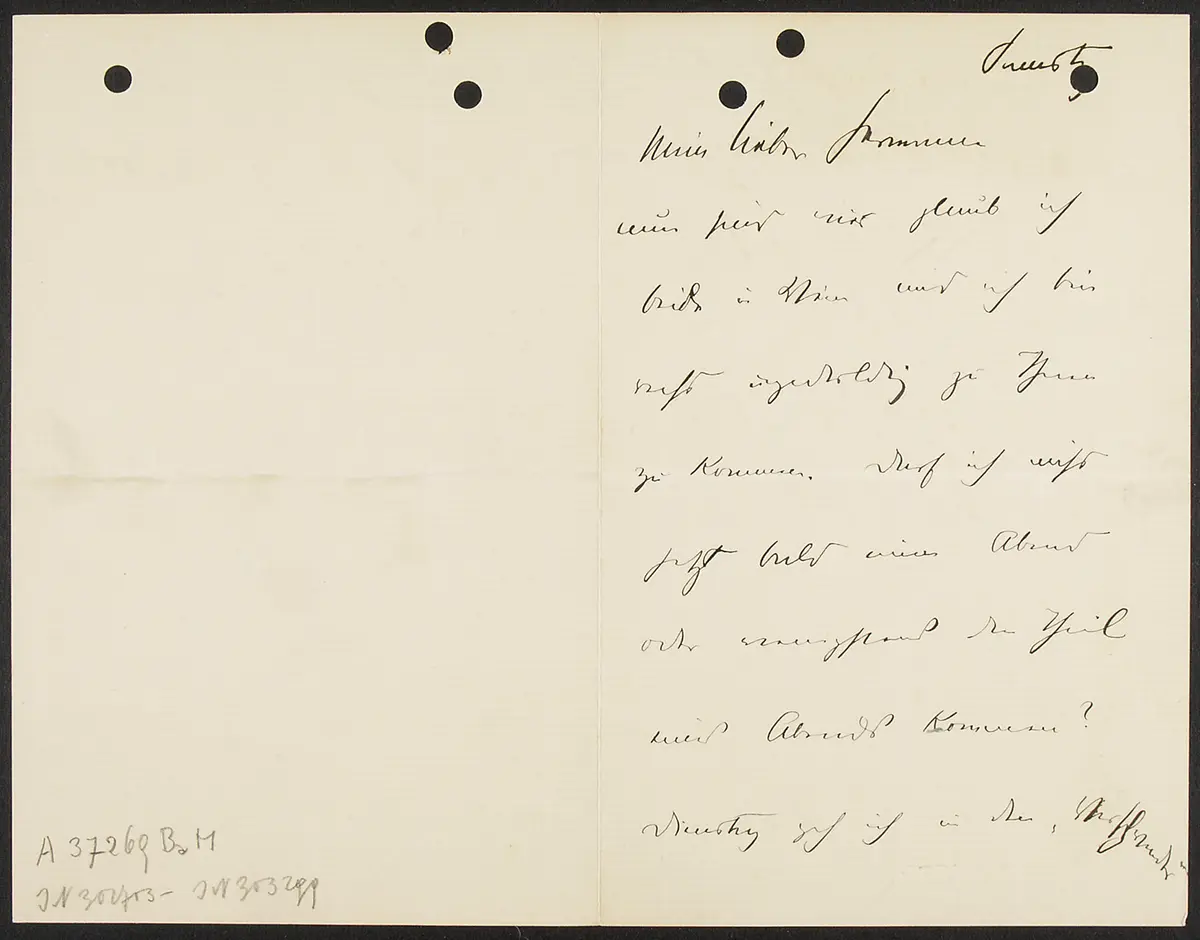 A 37269 BaM
IN 302703 - IN 303299
Mein lieber Hermann
nun sind wir glaub ich
beide in Wien und ich bin
recht ungeduldig zu Ihnen
zu kommen. Darf ich nicht
jetzt bald einen Abend
oder wenigstens den Theil
eines Abends kommen?
Dienstag geh ich in den „Verschwender“